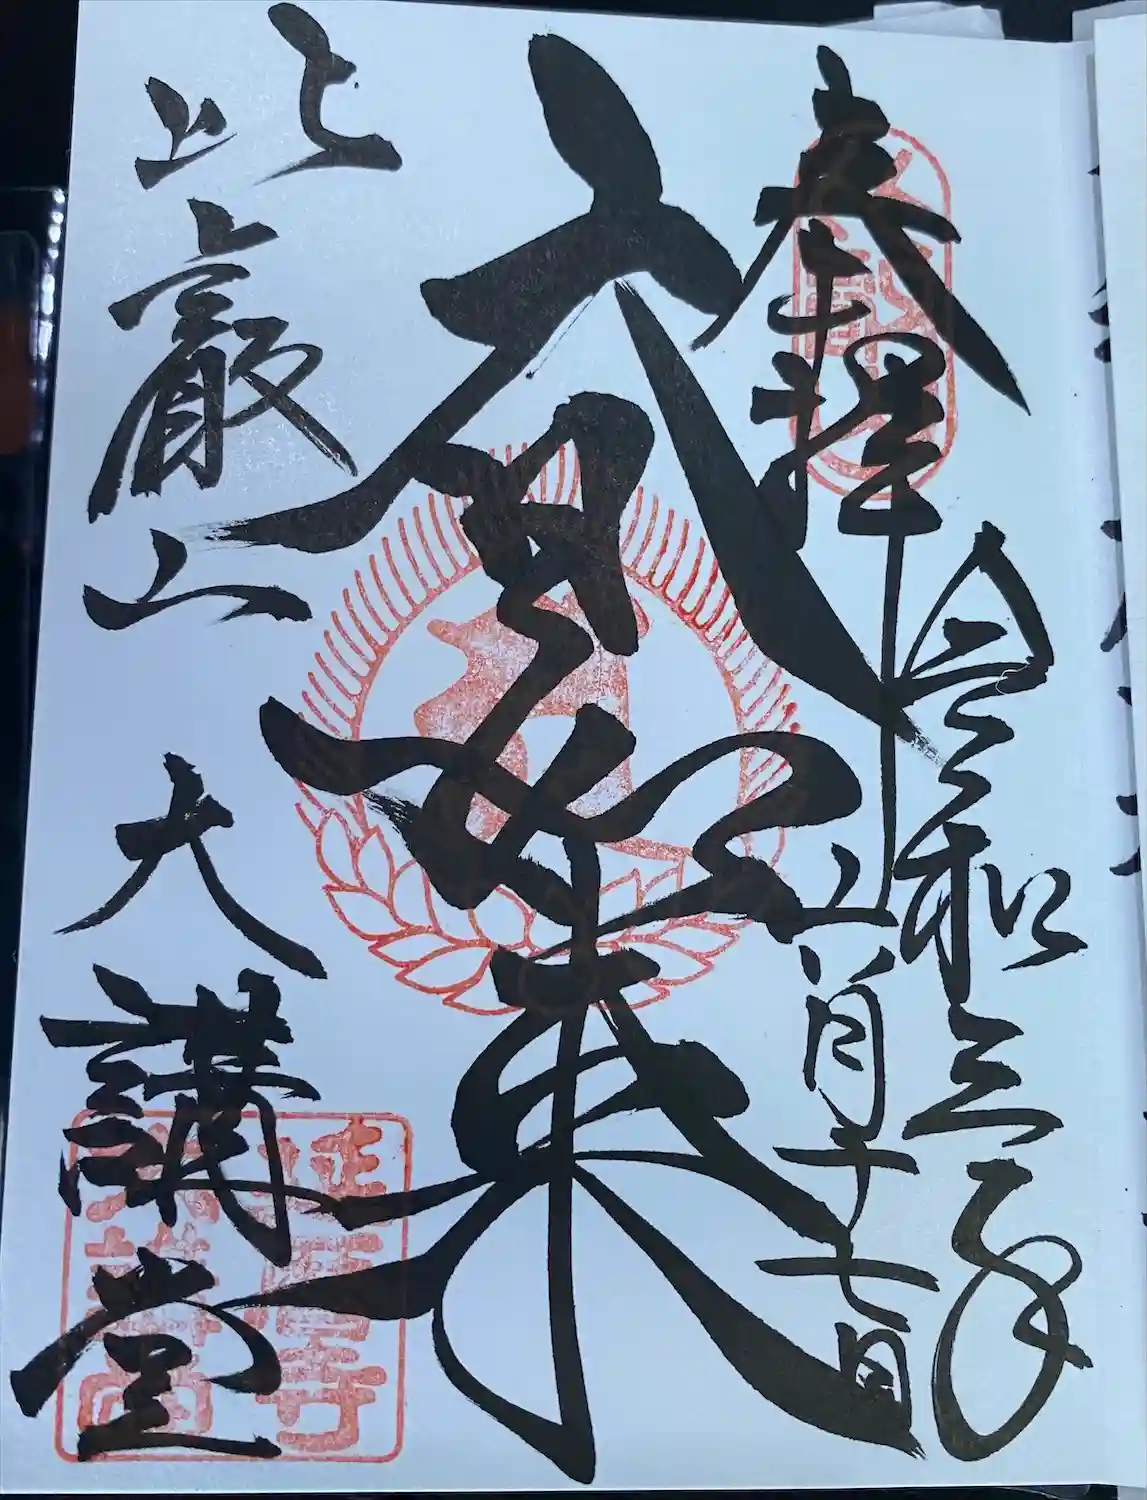 奉拝
令和三年
六月十七日
大日如来
比叡山
大講堂
延暦寺
大講堂